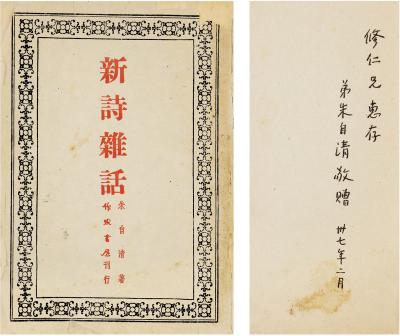 新詩雜話
朱自清著
作家書屋刊行
修仁兄惠存
弟朱自清敬贈
卅七年二月